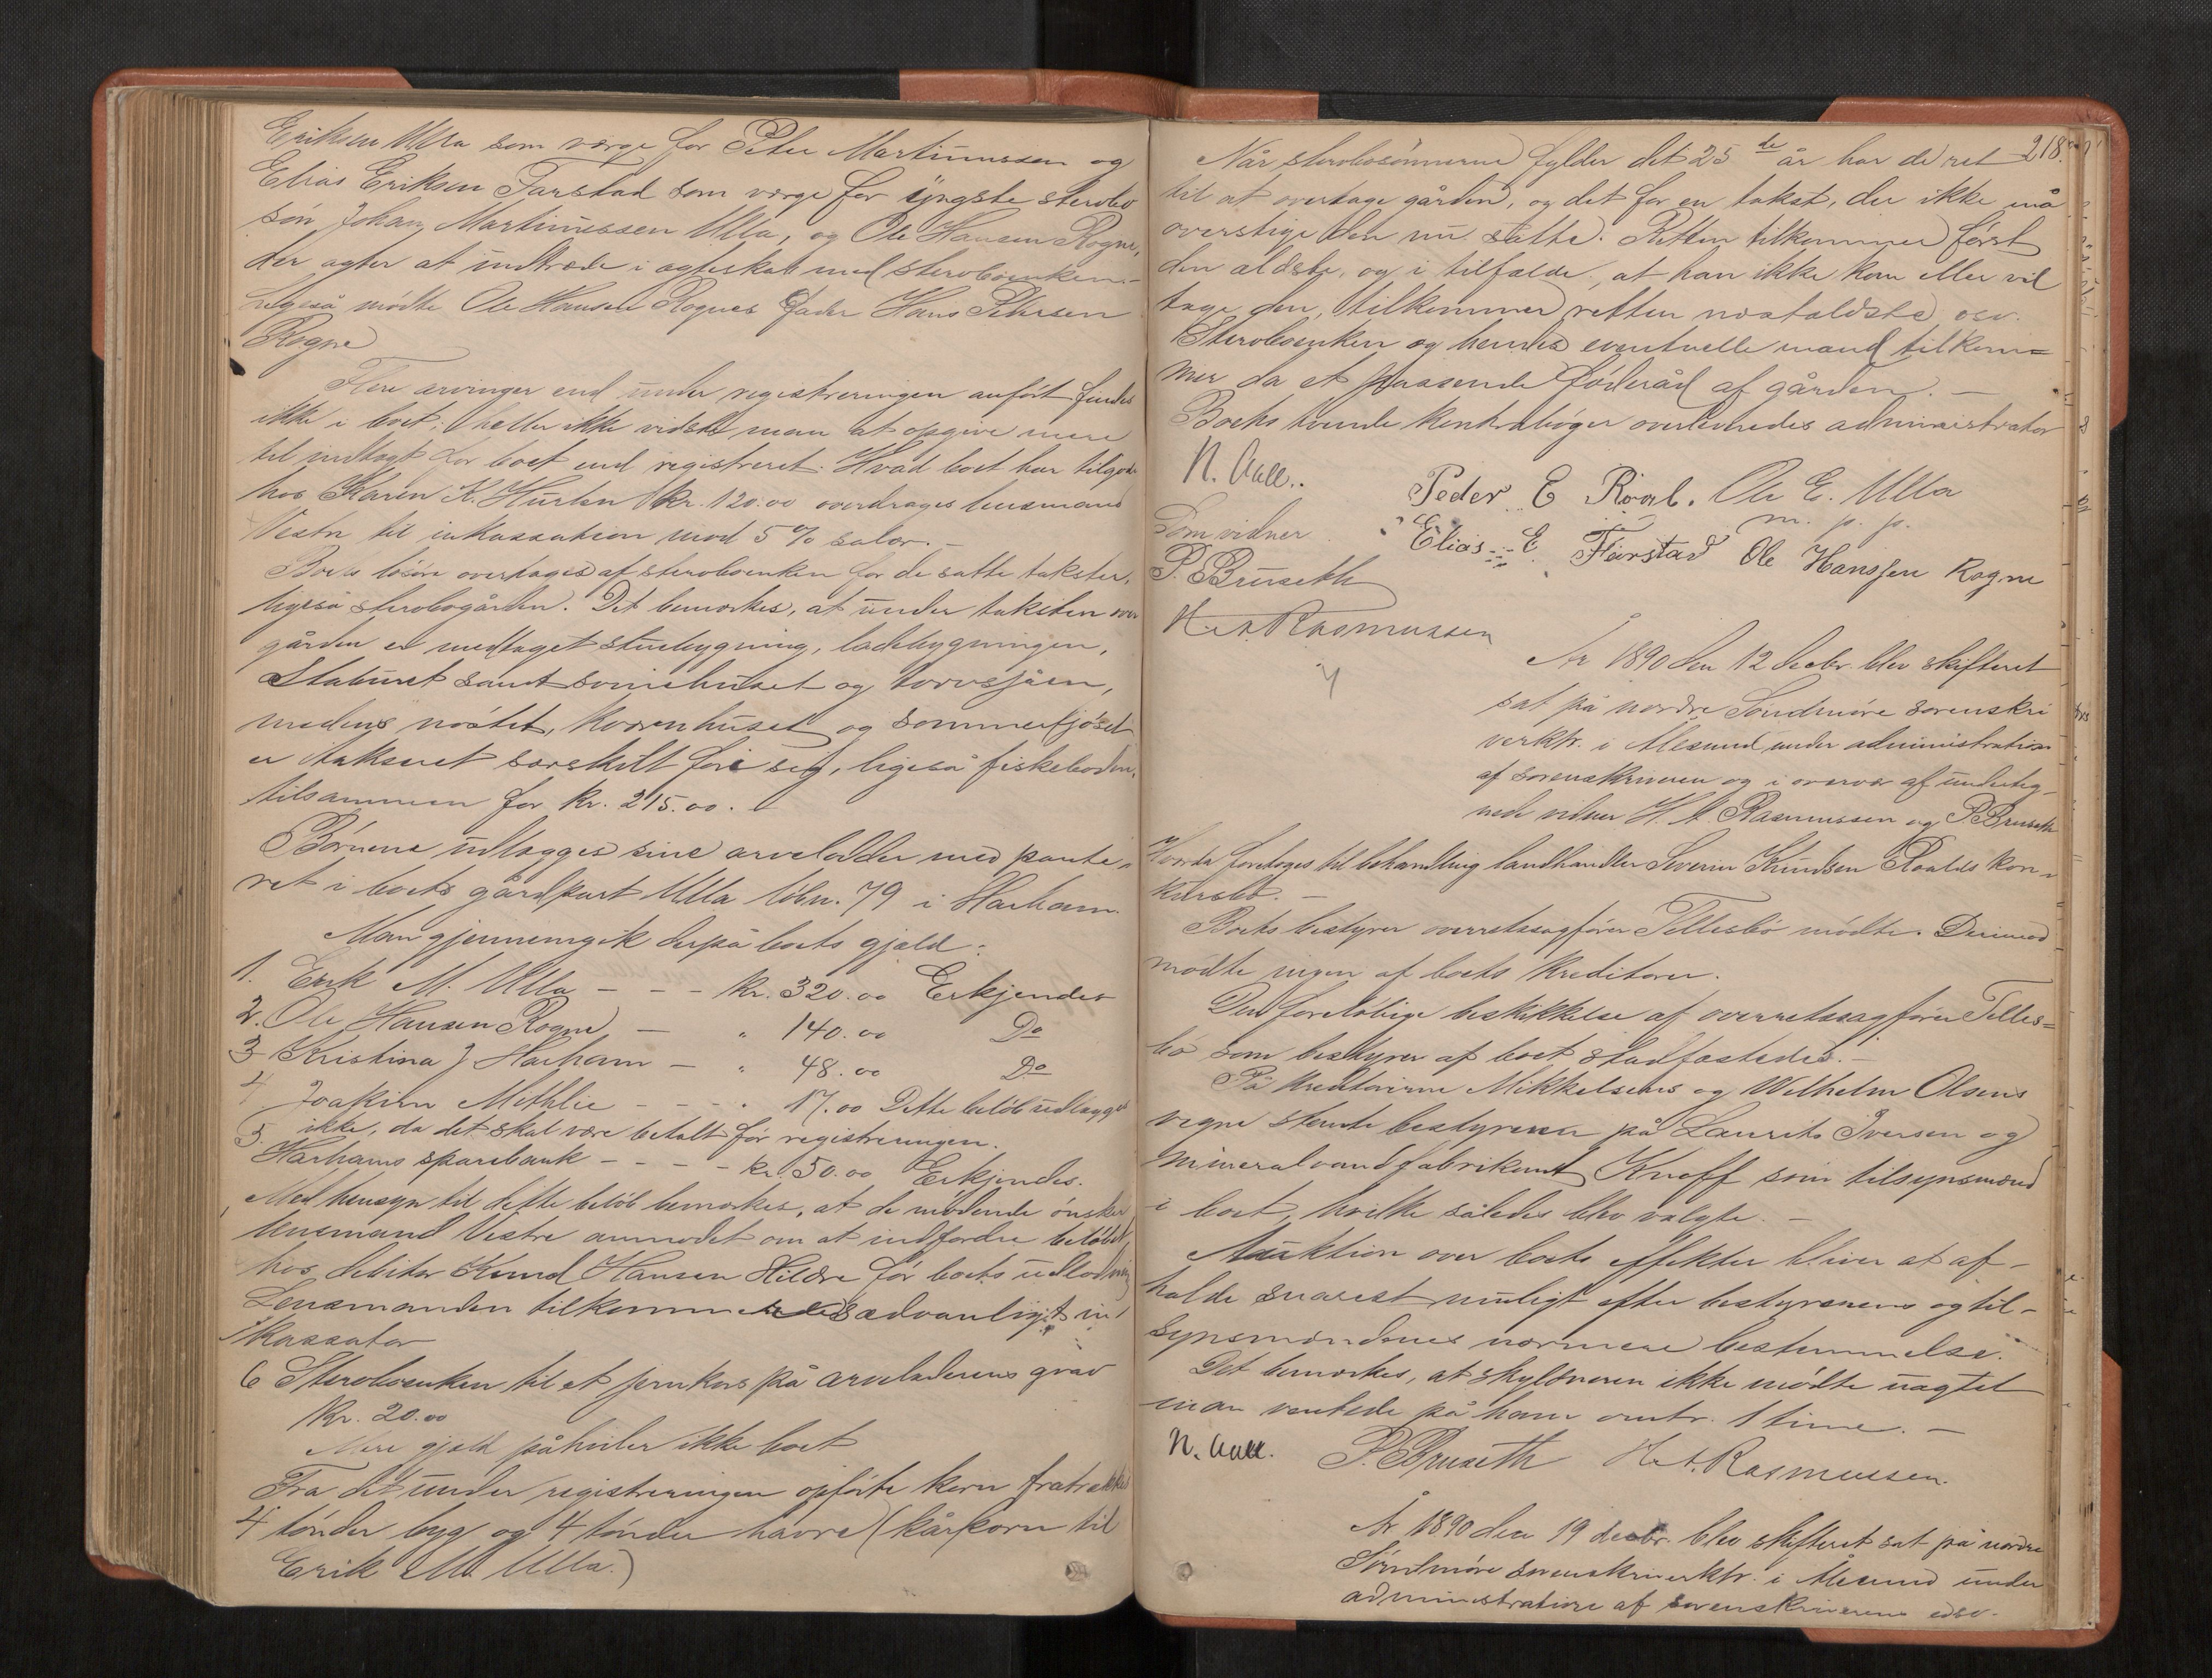 Eriksen Ulla som værge for Peter Martinussen og
Elias Eriksen Farstad som værge for yngste sterbo
søn Johan Martinussen Ulla, og Ole Hansen Rogne,
der agter at indtræde i ægteskab med sterboenken.
Ligeså mødte Ole Hansen Rognes fader Hans Petersen
Rogne
Flere arvinger end under registreringen anført findes
ikke i boet; heller ikke vidste man at opgive mere
til indtægt for boet end registreret. Hvad boet har tilgode
hos Karen K. Hurlen kr. 120.00 overdrages lensmand
Vestre til inkassation mod 5 % salær. –
Boets løsøre overtages af sterboenken for de satte takster,
ligeså sterbogården. Det bemærkes, at under taksten over
gården er medtaget stuebygning, ladebygningen,
Staburet samt svinehuset og torvsjåen,
medens nøstet, kvernhuset og sommerfjøset
er takseret særskilt for sig, ligeså fiskeboden,
tilsammen for kr. 215.00.
Børnene udlægges sine arvelodder med pante-
ret i boets gårdpart Ulla løbn. 79 i Harham.
Man gjennemgik derpå boets gjæld:
1. Erik M. Ulla – – – kr. 320.00 Erkjendes
2. Ole Hansen Rogne – " 140.00 Do
3 Kristina J Harham – " 48.00 Do
4 Joakim Methlie – – – " 17.00 Dette beløb udlægges
ikke, da det skal være betalt før registreringen.
5. Harhams sparebank – – – – kr. 50.00 Erkjendes.
Med hensyn til dette beløb bemærkes, at de mødende ønsker
lensmand Vestre anmodet om at indfordre beløbet
hos debitor Knud Hansen Hildre før boets udlodning
Lensmanden tilkommer sædvanligt in-
kassator
6 Sterboenken til et jernkors på arveladerens grav
Kr. 20.00
Mere gjæld påhviler ikke boet
Fra det under registreringen opførte korn fratrækkes
4 tønder byg og 4 tønder havre (kårkorn til
Erik M. Ulla.)
218.
Når sterbosønnerne fylder det 25de år har de ret
til at overtage gården, og det for en takst, der ikke må
overstige den nu satte. Retten tilkommer først
den ældste, og i tilfælde, at han ikke kan eller vil
tage den, tilkommer retten næstældste osv.
Sterboenken og hendes eventuelle mand tilkom-
mer da et passende føderåd af gården. –
Boets tvende kontrabøger overleveredes administrator
N. Aall.
Peder E Roal. Ole E. Ulla
m. p. p.
Som vidner
Elias E. Farstad Ole Hanssen Rogne
P. Bruseth
H. A. Rasmussen
År 1890 den 12 decbr. blev skifteret
sat på nordre Søndmøre sorenskri
verktr. i Ålesund under administration
af sorenskriveren og i overvær af underteg-
nede vidner H. A. Rasmussen og P. Bruseth
Hvorda foretoges til behandling landhandler Severin Knudsen Roalds kon-
kursbo. –
Boets bestyrer overretssagfører Tellesbø mødte. Derimod
mødte ingen af boets kreditorer.
Den foreløbige beskikkelse af overretssagfører Telles-
bø som bestyrer af boet stadfæstedes. –
På kreditorerne Mikkelsens og Wilhelm Olsens
vegne stemte bestyreren på Laurits Iversen og
mineralvandfabrikant Knoff som tilsynsmænd
i boet, hvilke således blev valgte. –
Auktion over boets effekter bliver at af-
holde snarest muligt efter bestyrerens og til-
synsmændenes nærmere bestemmelse.
Det bemærkes, at skyldneren ikke mødte uagtet
man ventede på ham omtr. 1 time. –
N. Aall. P. Bruseth H. A. Rasmussen.
År 1890 den 19 decbr. blev skifteret sat på nordre
Søndmøre sorenskriverktr. i Ålesund under
administration af sorenskriverens edsv.